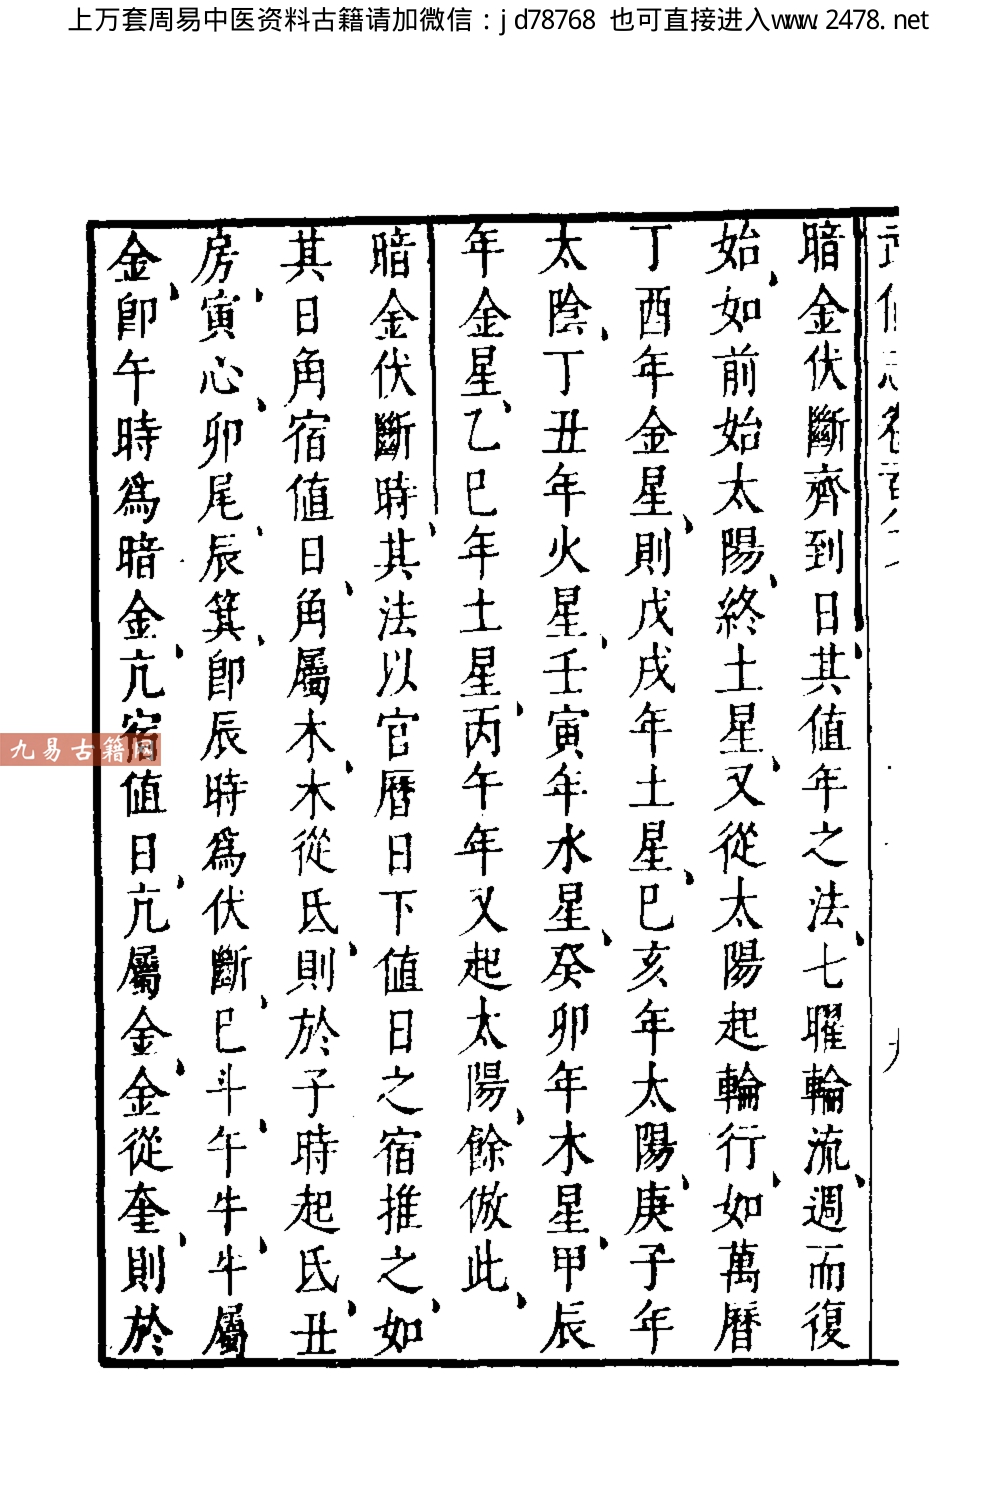 上万套周易中医资料古籍请加微信：jd78768 也可直接进入www.2478.net
暗金伏斷齊到日其值年之法、七曜輪流、週而復
始、如前始太陽、終土星、又從太陽起輪行、如萬曆
丁酉年金星、則戊戌年土星、巳亥年太陽、庚子年
太陰、丁丑年火星、壬寅年水星、癸卯年木星、甲辰
年金星、乙巳年土星、丙午年又起太陽、餘倣此、
暗金伏斷時、其法以官曆日下值日之宿推之、如
其日角宿值日、角屬木、木從氐、則於子時起氐、丑
房、寅心、卯尾、辰箕、卽辰時爲伏斷、巳斗、午牛、牛屬
金、卽午時爲暗金、亢宿值日、亢屬金、金從奎、則於
九易古籍网